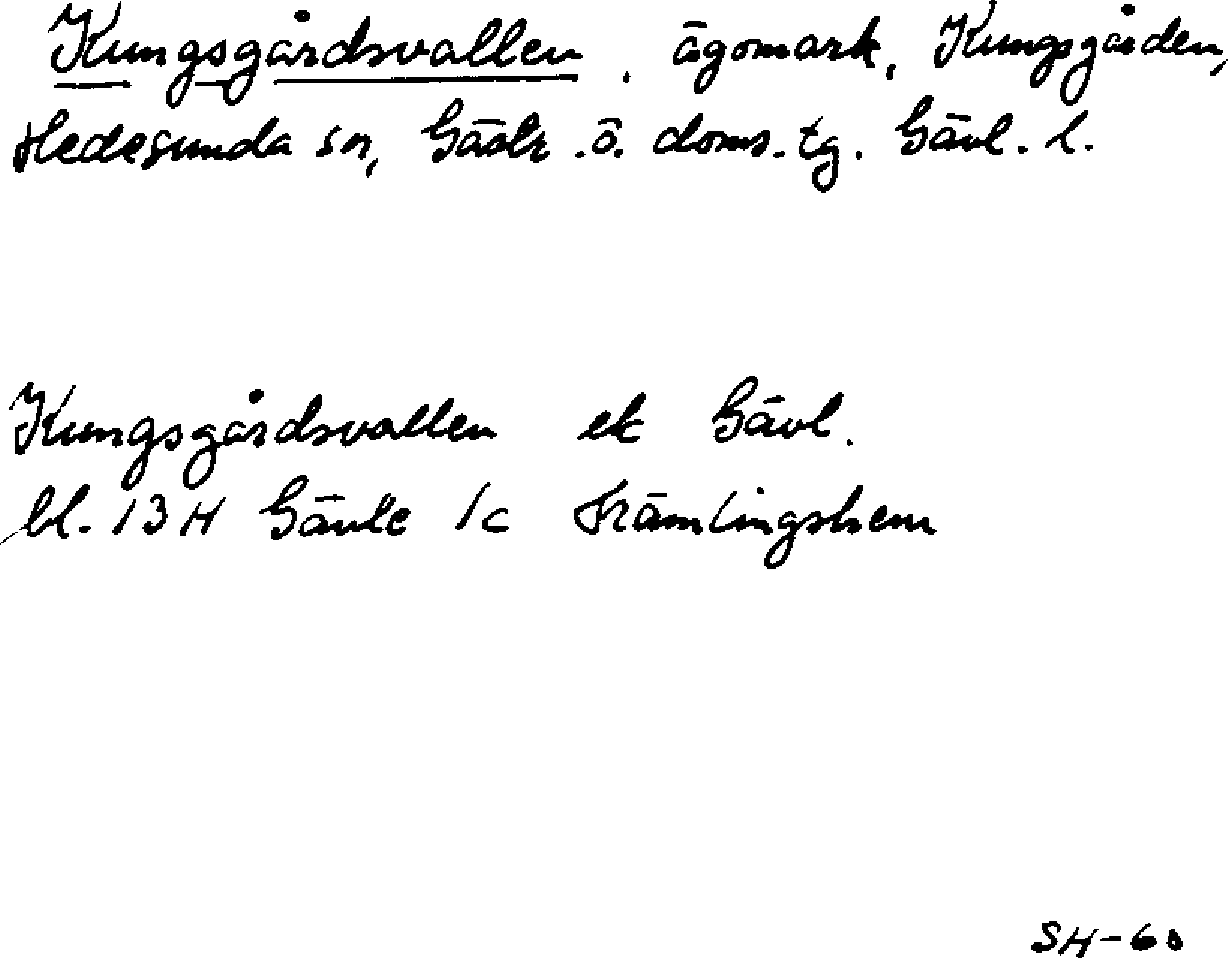 Kungsgårdsvallen, ägomark, Kungsgården,
Hedesunda sn, Gästr. ö. doms. tg. Gävl. l.
Kungsgårdsvallen ek Gävl.
bl. 13H Gävle 1c Främlingshem
SH-60